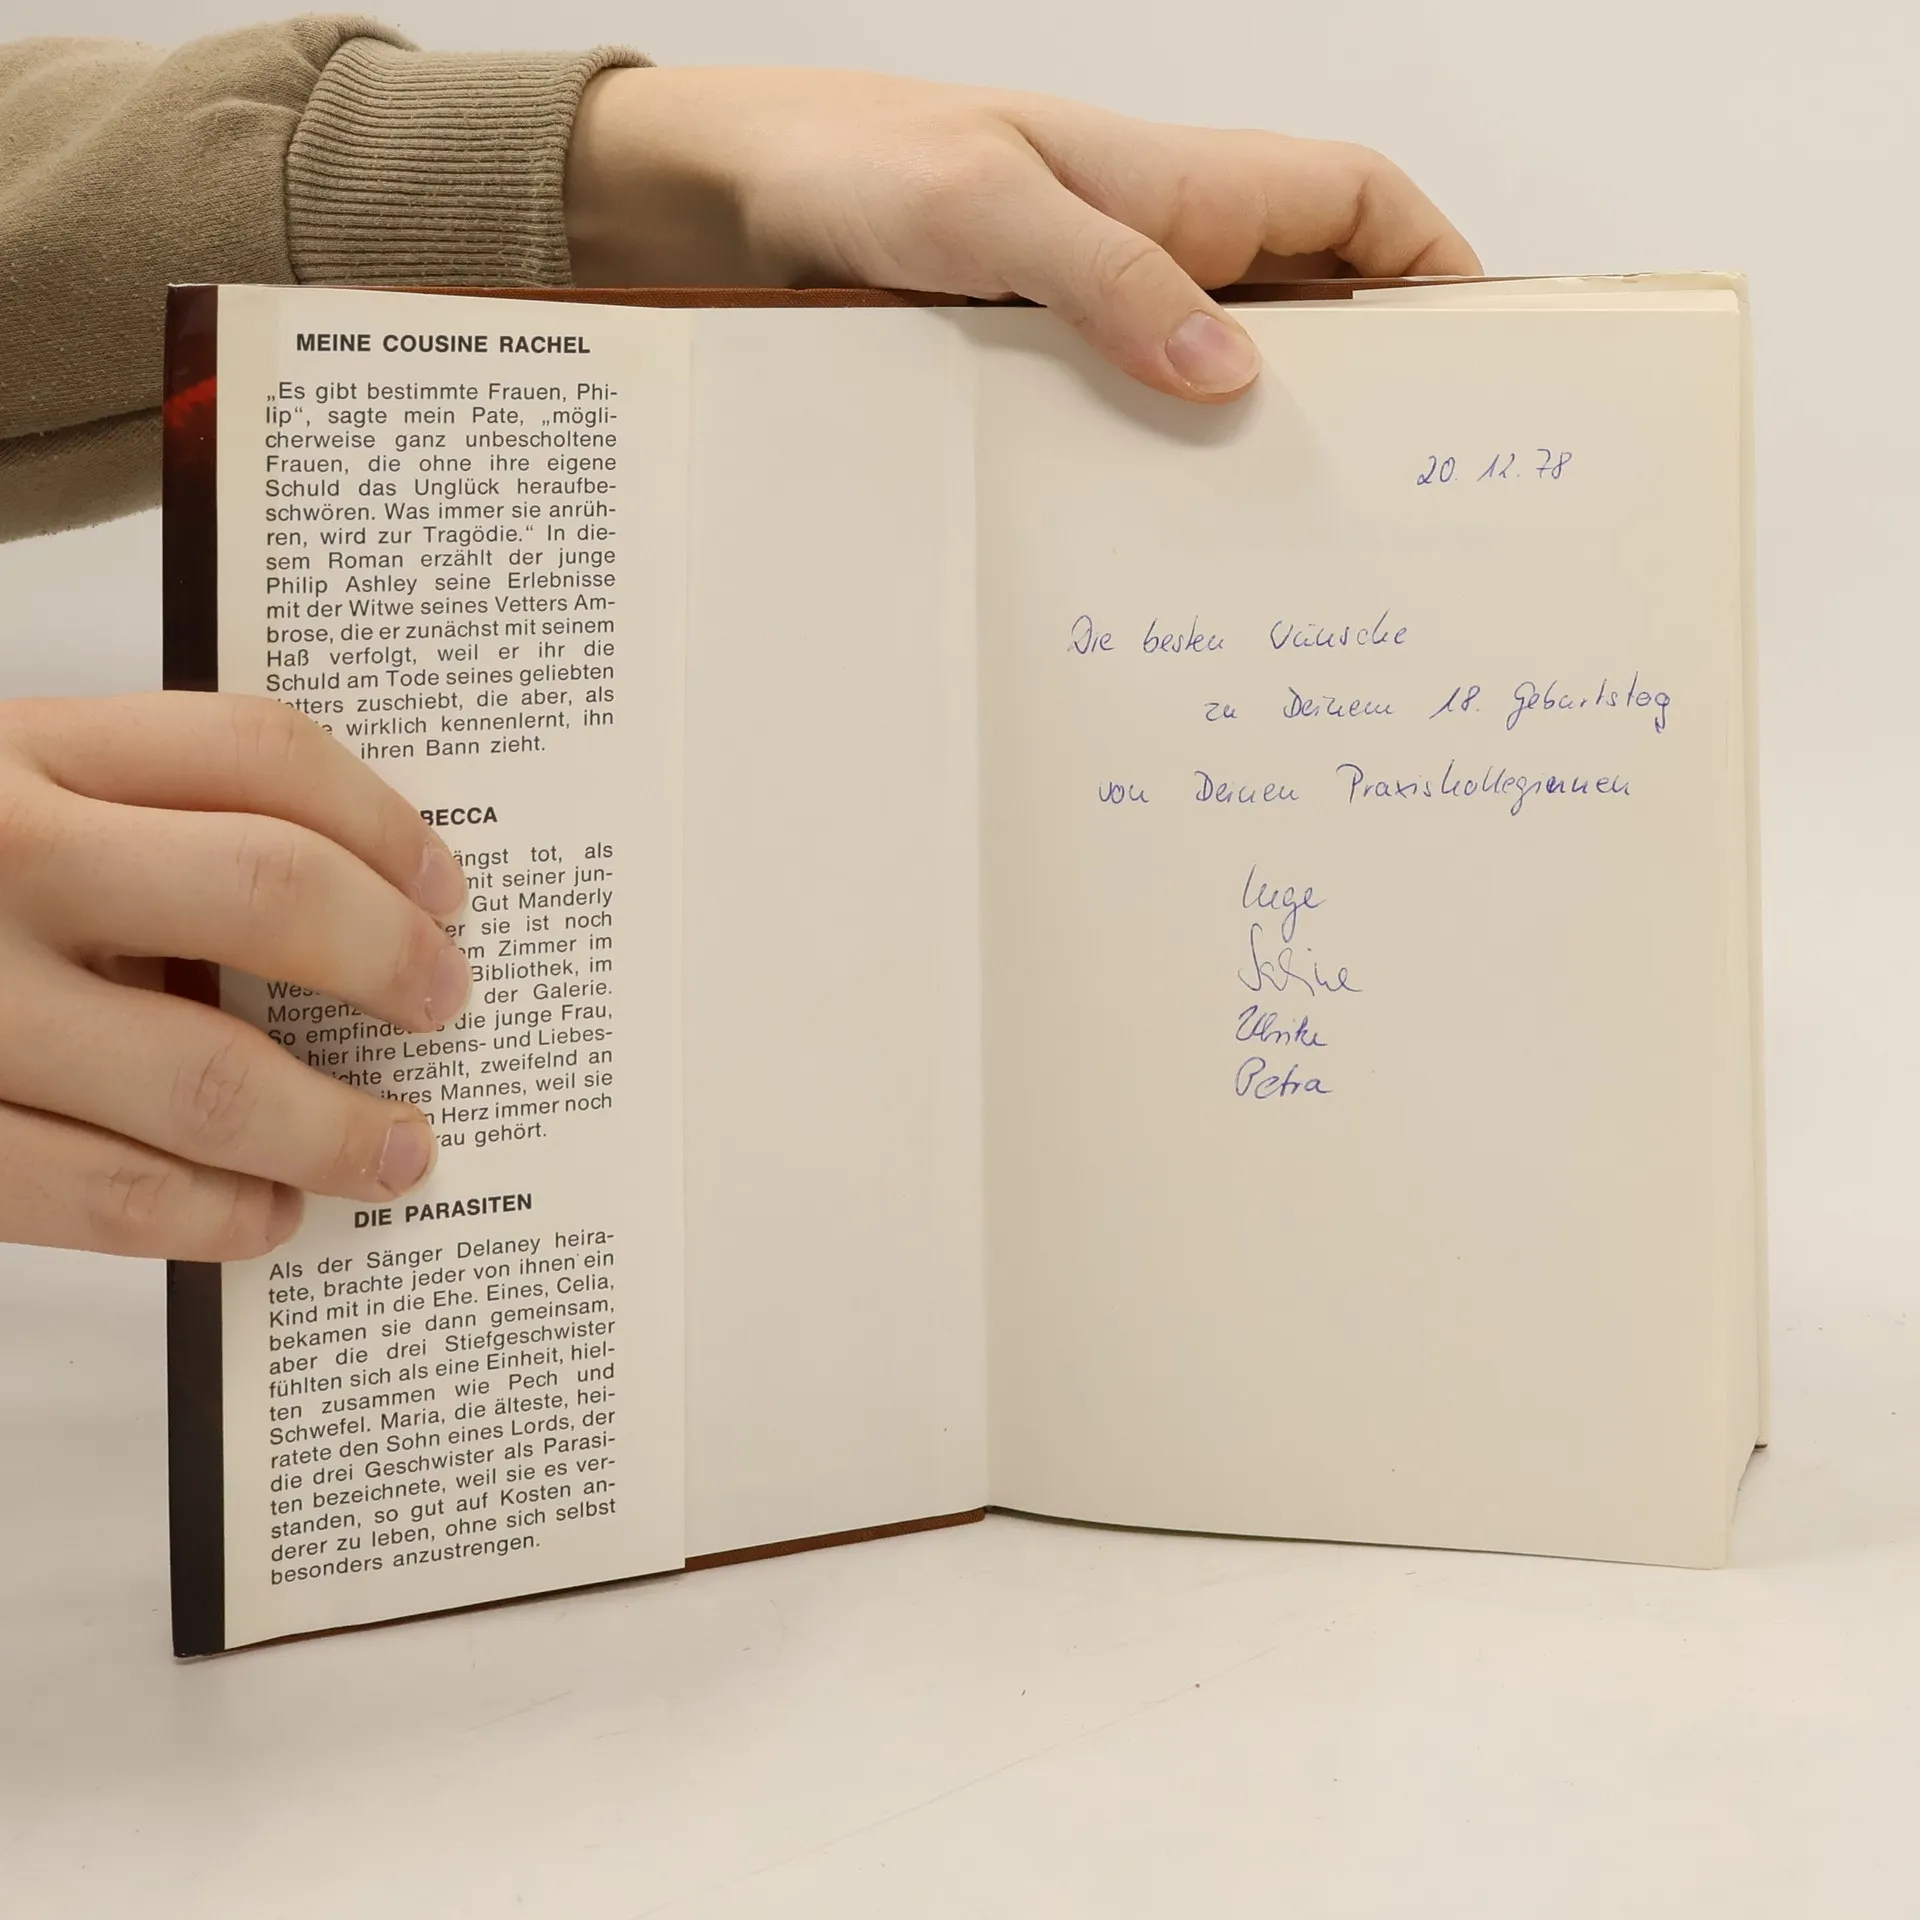 MEINE COUSINE RACHEL
„Es gibt bestimmte Frauen, Phi-
lip“, sagte mein Pate, „mögli-
cherweise ganz unbescholtene
Frauen, die ohne ihre eigene
Schuld das Unglück heraufbe-
schwören. Was immer sie anrüh-
ren, wird zur Tragödie.“ In die-
sem Roman erzählt der junge
Philip Ashley seine Erlebnisse
mit der Witwe seines Vetters Am-
brose, die er zunächst mit seinem
Haß verfolgt, weil er ihr die
Schuld am Tode seines geliebten
etters zuschiebt, die aber, als
e wirklich kennenlernt, ihn
ihren Bann zieht.
BECCA
ängst tot, als
mit seiner jun-
Gut Manderly
er sie ist noch
em Zimmer im
Bibliothek, im
Wes der Galerie.
Morgenz die junge Frau,
So empfinde
hier ihre Lebens- und Liebes-
ichte erzählt, zweifelnd an
ihres Mannes, weil sie
n Herz immer noch
rau gehört.
DIE PARASITEN
Als der Sänger Delaney heira-
tete, brachte jeder von ihnen ein
Kind mit in die Ehe. Eines, Celia,
bekamen sie dann gemeinsam,
aber die drei Stiefgeschwister
fühlten sich als eine Einheit, hiel-
ten zusammen wie Pech und
Schwefel. Maria, die älteste, hei-
ratete den Sohn eines Lords, der
die drei Geschwister als Parasi-
ten bezeichnete, weil sie es ver-
standen, so gut auf Kosten an-
derer zu leben, ohne sich selbst
besonders anzustrengen.
20. 12. 78
Die besten Wünsche
zu Deinem 18. Geburtstag
von Deinen Praxiskolleginnen
Inge
Sabine
Ulrike
Petra